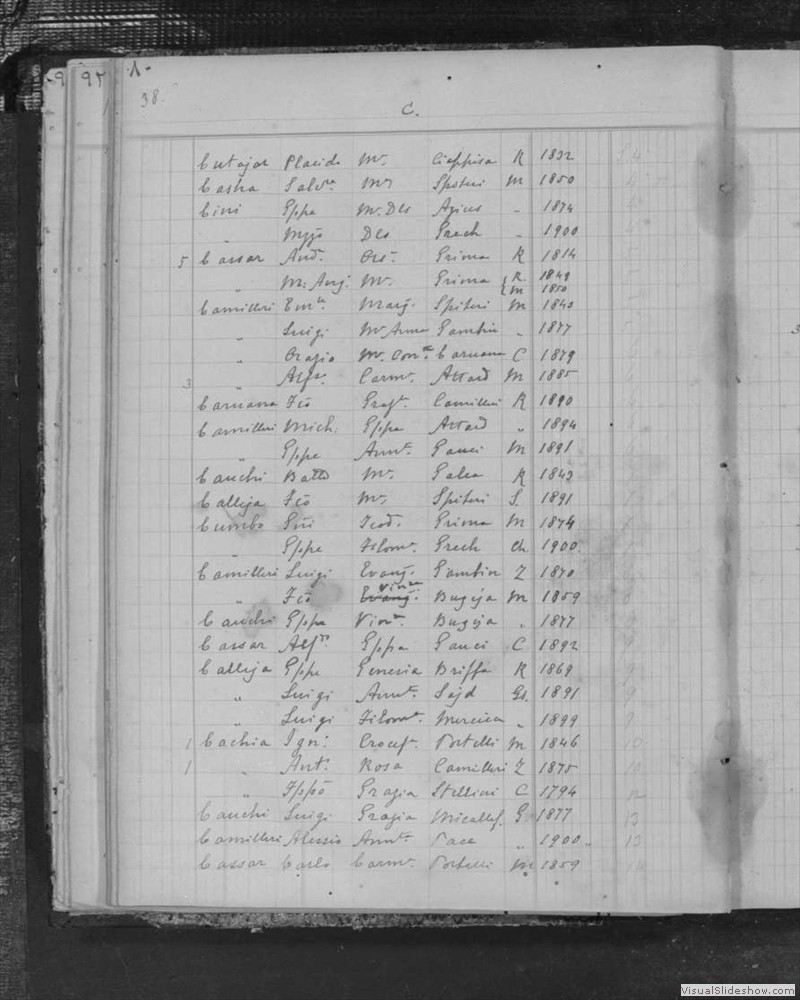 38.
C.
Cutajar Placido Mr. Ciappisa R 1832
Casha Salvre Mr Spiteri M 1850
Cini Gppa Mr. Dlo Agius " 1874
" Dlo Grech " 1900
5 Cassar And. Grima R 1814
" M. Ang. Mr. Grima { R. 1849
M 1850
Camilleri Emle Marg. Spiteri M 1843
" Luigi Mr Anna Gambin " 1877
" Orazio Mr. Conne Caruana C 1879
3 " Alfso Carmr. Attard M 1885
Caruana Fco Grazr. Camilleri R 1890
Camilleri Mich: Gppa Attard " 1894
" Gppe Annta Gauci M 1891
Cauchi Batto Mr. Galea R 1843
Calleja Fco Mr. Spiteri S. 1891
Cumbo Teod. Grima M 1874
" Gppe Filomr. Grech Ch 1900
Camilleri Luigi Evang. Gambin Z 1870
Vinza
" Fco Evang. Bugeja M 1859
Cauchi Gppa Vinr. Bugeja " 1877
Cassar Alfso Gppa Gauci C 1892
Calleja Gppe Genesia Briffa R 1869
" Luigi Annta Sajd Gs. 1891
" Luigi Filomr. Mercieca " 1899
1 Cachia Ign: Crocefr. Portelli M 1846
1 " Ant. Rosa Camilleri Z 1875
" Fppo Grazia Stellini C 1794
Cauchi Luigi Grazia Micallef G 1877
Camilleri Alessio Annta Pace " 1900
Cassar Carlo Carmr. Portelli M 1859
VisualSlideshow.com